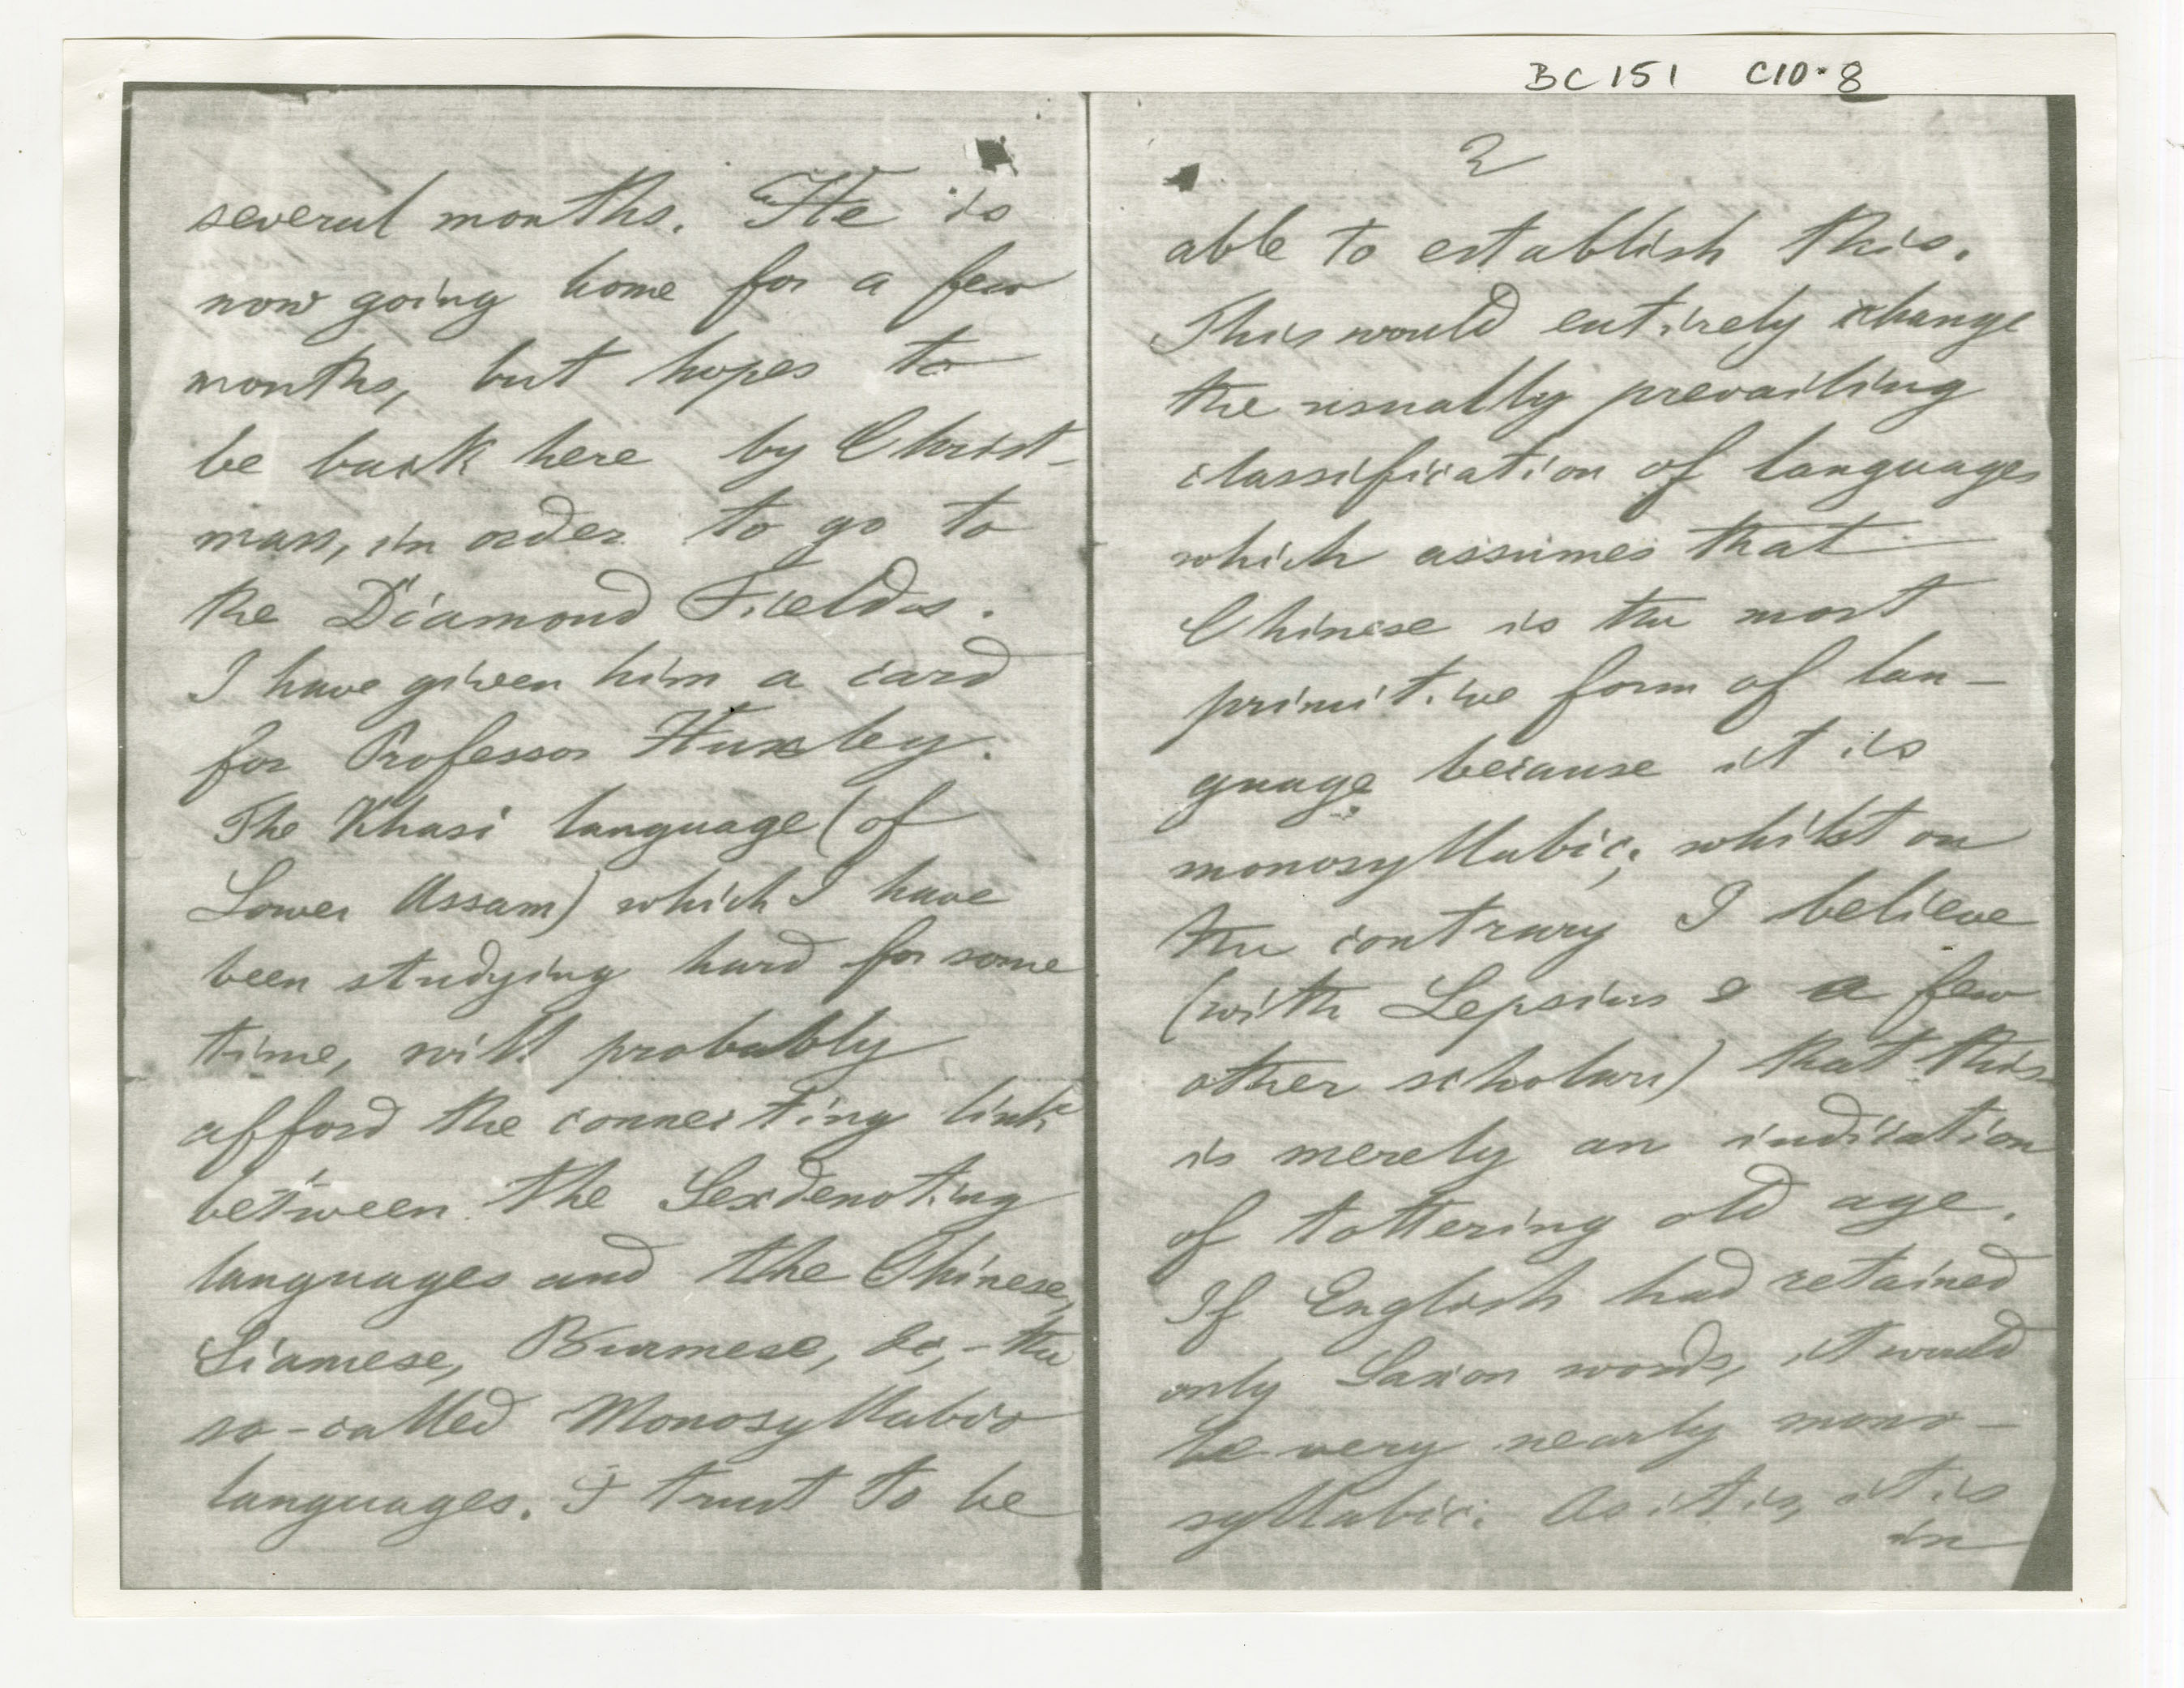 BC 151 C10.8
several months. He is
now going home for a few
months, but hopes to
be back here by Christ-
mas, in order to go to
the Diamond Fields.
I have given him a card
for Professor Huxley.
The Khasi language (of
Lower Assam) which I have
been studying hard for some
time, will probably
afford the connecting link
between the Sexdenoting
languages and the Chinese,
Siamese, Burmese, &c, - the
so-called Monosyllabic
languages. I trust to be
2
able to establish this.
This would entirely change
the usually prevailing
classification of languages
which assumes that
Chinese is the most
primitive form of lan-
guage because it is
monosyllabic; whilst on
the contrary I believe
(with Lepsius & a few
other scholars) that this
is merely an indication
of tottering old age.
If English had retained
only Saxon words, it would
be very nearly mono-
syllabic. As it is, it is
in